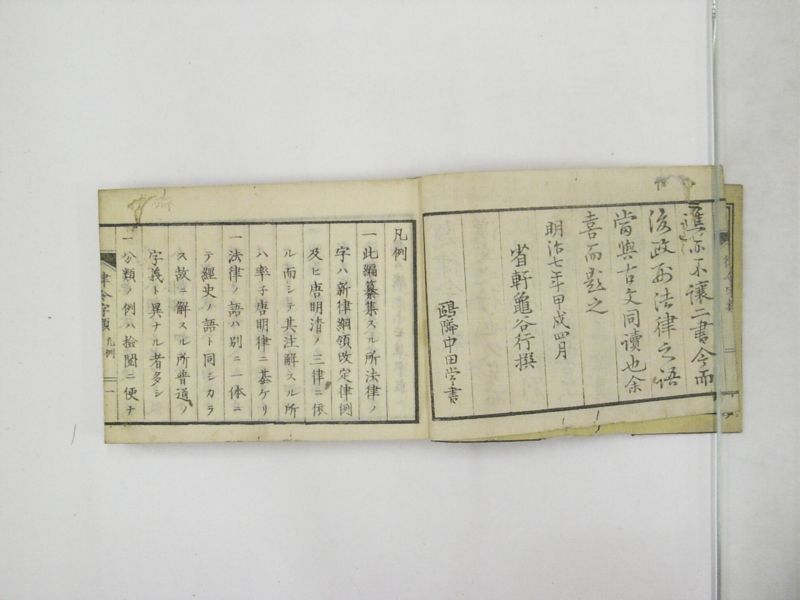 亦不讓二書今而
後政刑法律之語
當與古文同讀也余
喜而題之
明治七年甲戌四月
省軒龜谷行撰
中田 書
凡例
一此編纂集スル所法律ノ
字ハ新律綱領改定律例
及ヒ唐明清ノ三律ニ依
ル而シテ其注解スル所
ハ率子唐明律ニ基ケリ
一法律ノ語ハ別ニ一体ニ
テ經史ノ語ト同シカラ
ス故ニ解スル所普通ノ
字義ト異ナル者多シ
一分類ノ例ハ捡閲ニ便ナ
律令字類 凡例